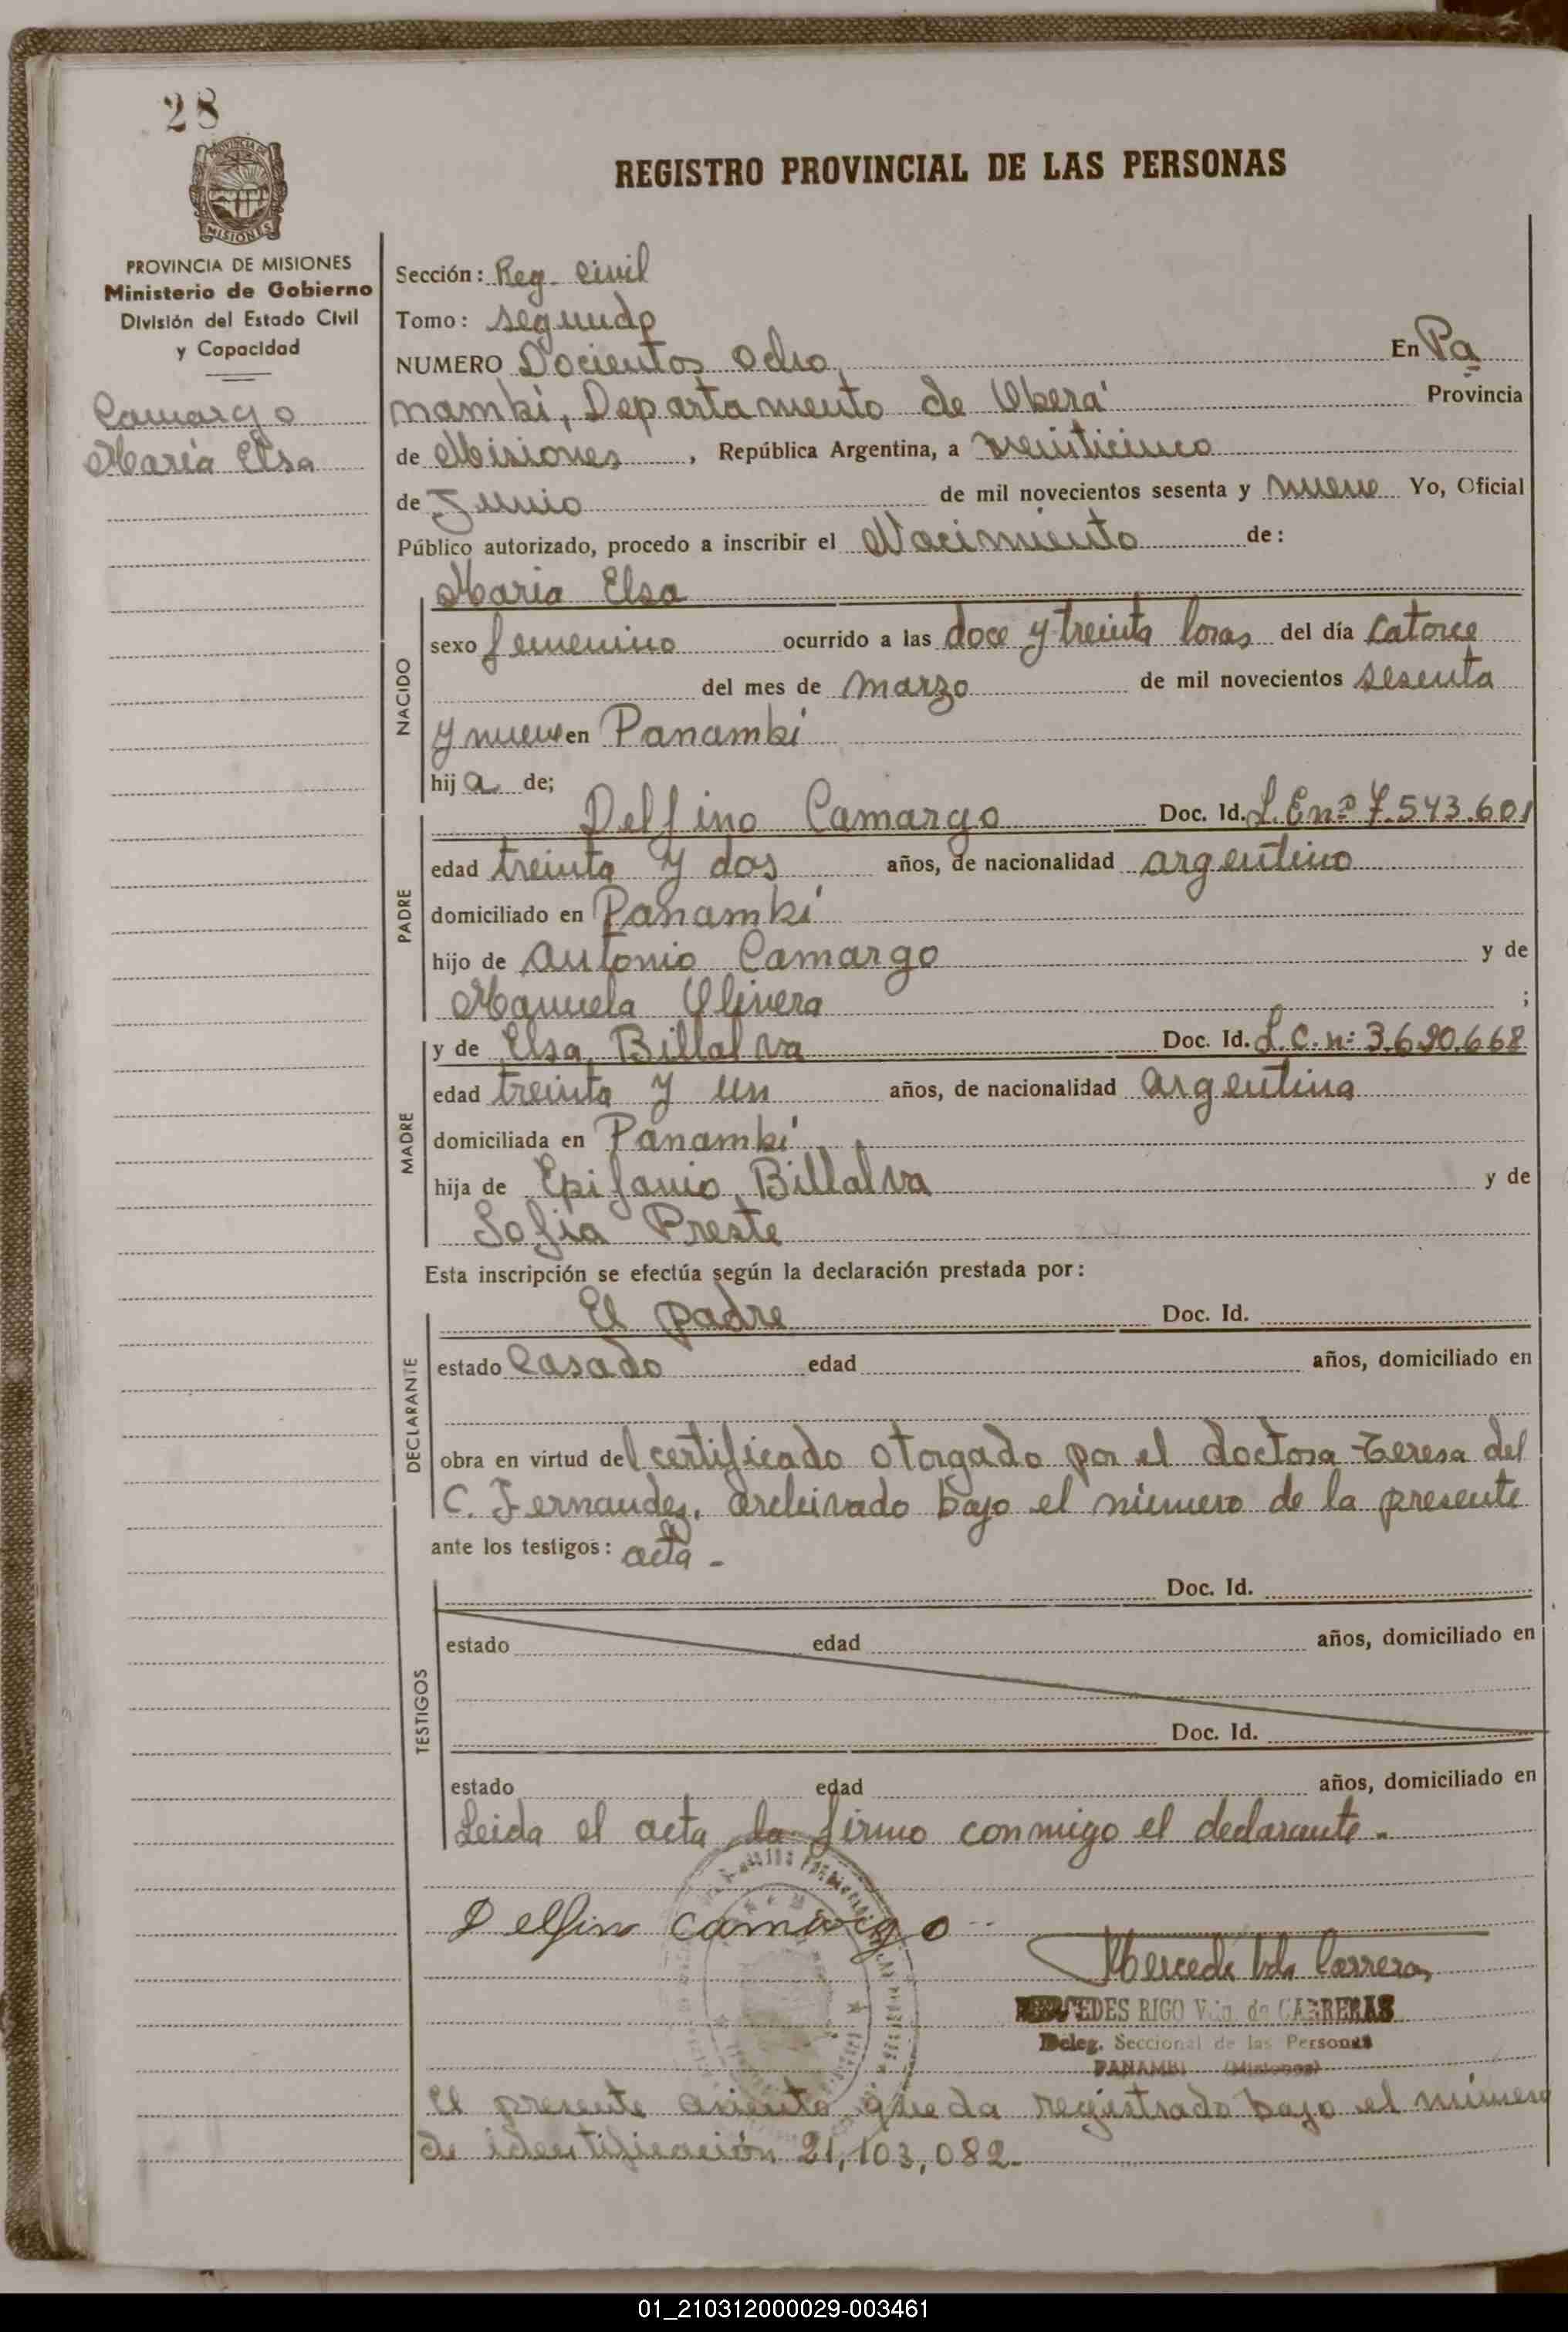 28
PROVINCIA DE MISIONES
Ministerio de Gobierno
División del Estado Civil
y Capacidad
Camargo
María Elsa
REGISTRO PROVINCIAL DE LAS PERSONAS
Sección: Reg. Civil
Tomo: segundo
NUMERO Docientos ocho En Pa
nambí, Departamento de Oberá Provincia
de Misiones, República Argentina, a veinticinco
de Junio de mil novecientos sesenta y nueve Yo, Oficial
Público autorizado, procedo a inscribir el Nacimiento de:
NACIDO
María Elsa
sexo femenino ocurrido a las doce y treinta horas del día catorce
del mes de marzo de mil novecientos sesenta
y nueve en Panambí
hija de;
PADRE
Delfino Camargo Doc. Id. L.E nº 7.543.601
edad treinta y dos años, de nacionalidad argentino
domiciliado en Panambí
hijo de Antonio Camargo y de
Manuela Olivera ;
MADRE
y de Elsa Billalva Doc. Id. L.C. nº 3.690.668
edad treinta y un años, de nacionalidad argentina
domiciliada en Panambí
hija de Epifanio Billalva y de
Sofia Preste
Esta inscripción se efectúa según la declaración prestada por:
DECLARANTE
El padre Doc. Id.
estado Casado edad años, domiciliado en
obra en virtud del certificado otorgado por el doctora Teresa del
C. Fernandez, archivado bajo el número de la presente
ante los testigos: acta -
TESTIGOS
Doc. Id.
estado edad años, domiciliado en
Doc. Id.
estado edad años, domiciliado en
Leida el acta, la firmo conmigo el declarante.
Delfino camargo
Mercedes Vda Carreras
MERCEDES RIGO Vda. de CARRERAS
Deleg. Seccional de las Personas
PANAMBI (Misiones)
El presente asiento queda registrado bajo el número
de identificación 21,103,082.
01_210312000029-003461